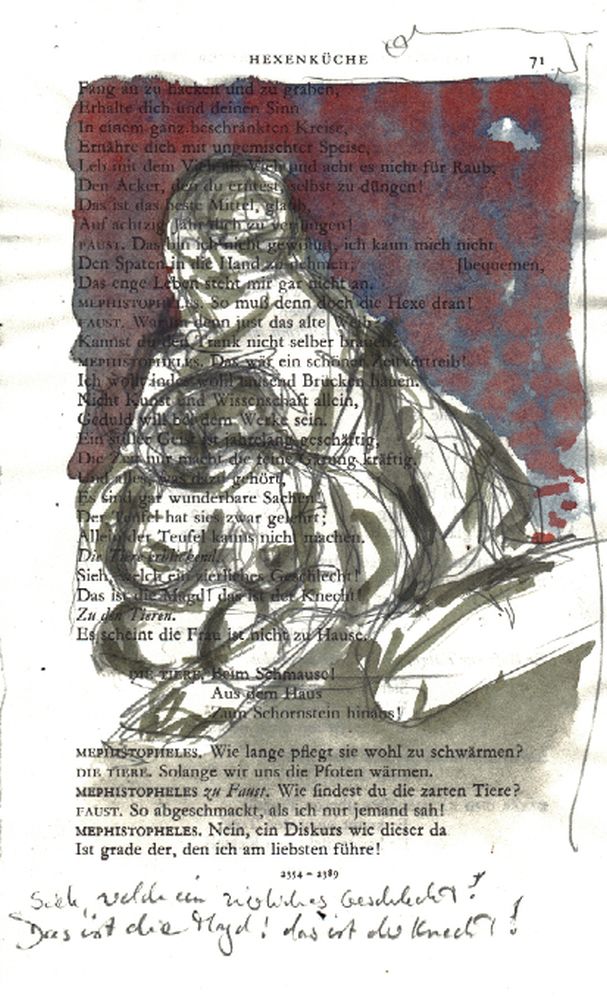 HEXENKÜCHE 71
Fang an zu hacken und zu graben,
Erhalte dich und deinen Sinn
In einem ganz beschränkten Kreise,
Ernähre dich mit ungemischter Speise,
Leb mit dem Vieh als Vieh und acht es nicht für Raub,
Den Acker, den du erntest, selbst zu düngen!
Das ist das beste Mittel, glaub,
Auf achtzig Jahr dich zu verjüngen!
FAUST. Das bin ich nicht gewöhnt, ich kann mich nicht
Den Spaten in die Hand zu nehmen; [bequemen,
Das enge Leben steht mir gar nicht an.
MEPHISTOPHELES. So muß denn doch die Hexe dran!
FAUST. Warum denn just das alte Weib?
Kannst du den Trank nicht selber brauen?
MEPHISTOPHELES. Das wär ein schöner Zeitvertreib!
Ich wollt indes wohl tausend Brücken bauen.
Nicht Kunst und Wissenschaft allein,
Geduld will bei dem Werke sein.
Ein stiller Geist ist jahrelang geschäftig,
Die Zeit nur macht die feine Gärung kräftig.
Und alles, was dazu gehört,
Es sind gar wunderbare Sachen!
Der Teufel hat sies zwar gelehrt;
Allein der Teufel kanns nicht machen.
Die Tiere erblickend.
Sieh, welch ein zierliches Geschlecht!
Das ist die Magd! das ist der Knecht!
Zu den Tieren.
Es scheint die Frau ist nicht zu Hause.
DIE TIERE. Beim Schmause!
Aus dem Haus
Zum Schornstein hinaus!
MEPHISTOPHELES. Wie lange pflegt sie wohl zu schwärmen?
DIE TIERE. Solange wir uns die Pfoten wärmen.
MEPHISTOPHELES zu Faust. Wie findest du die zarten Tiere?
FAUST. So abgeschmackt, als ich nur jemand sah!
MEPHISTOPHELES. Nein, ein Diskurs wie dieser da
Ist grade der, den ich am liebsten führe!
2354 – 2389
Sieh, welch ein zierliches Geschlecht!
Das ist die Magd! das ist der Knecht!